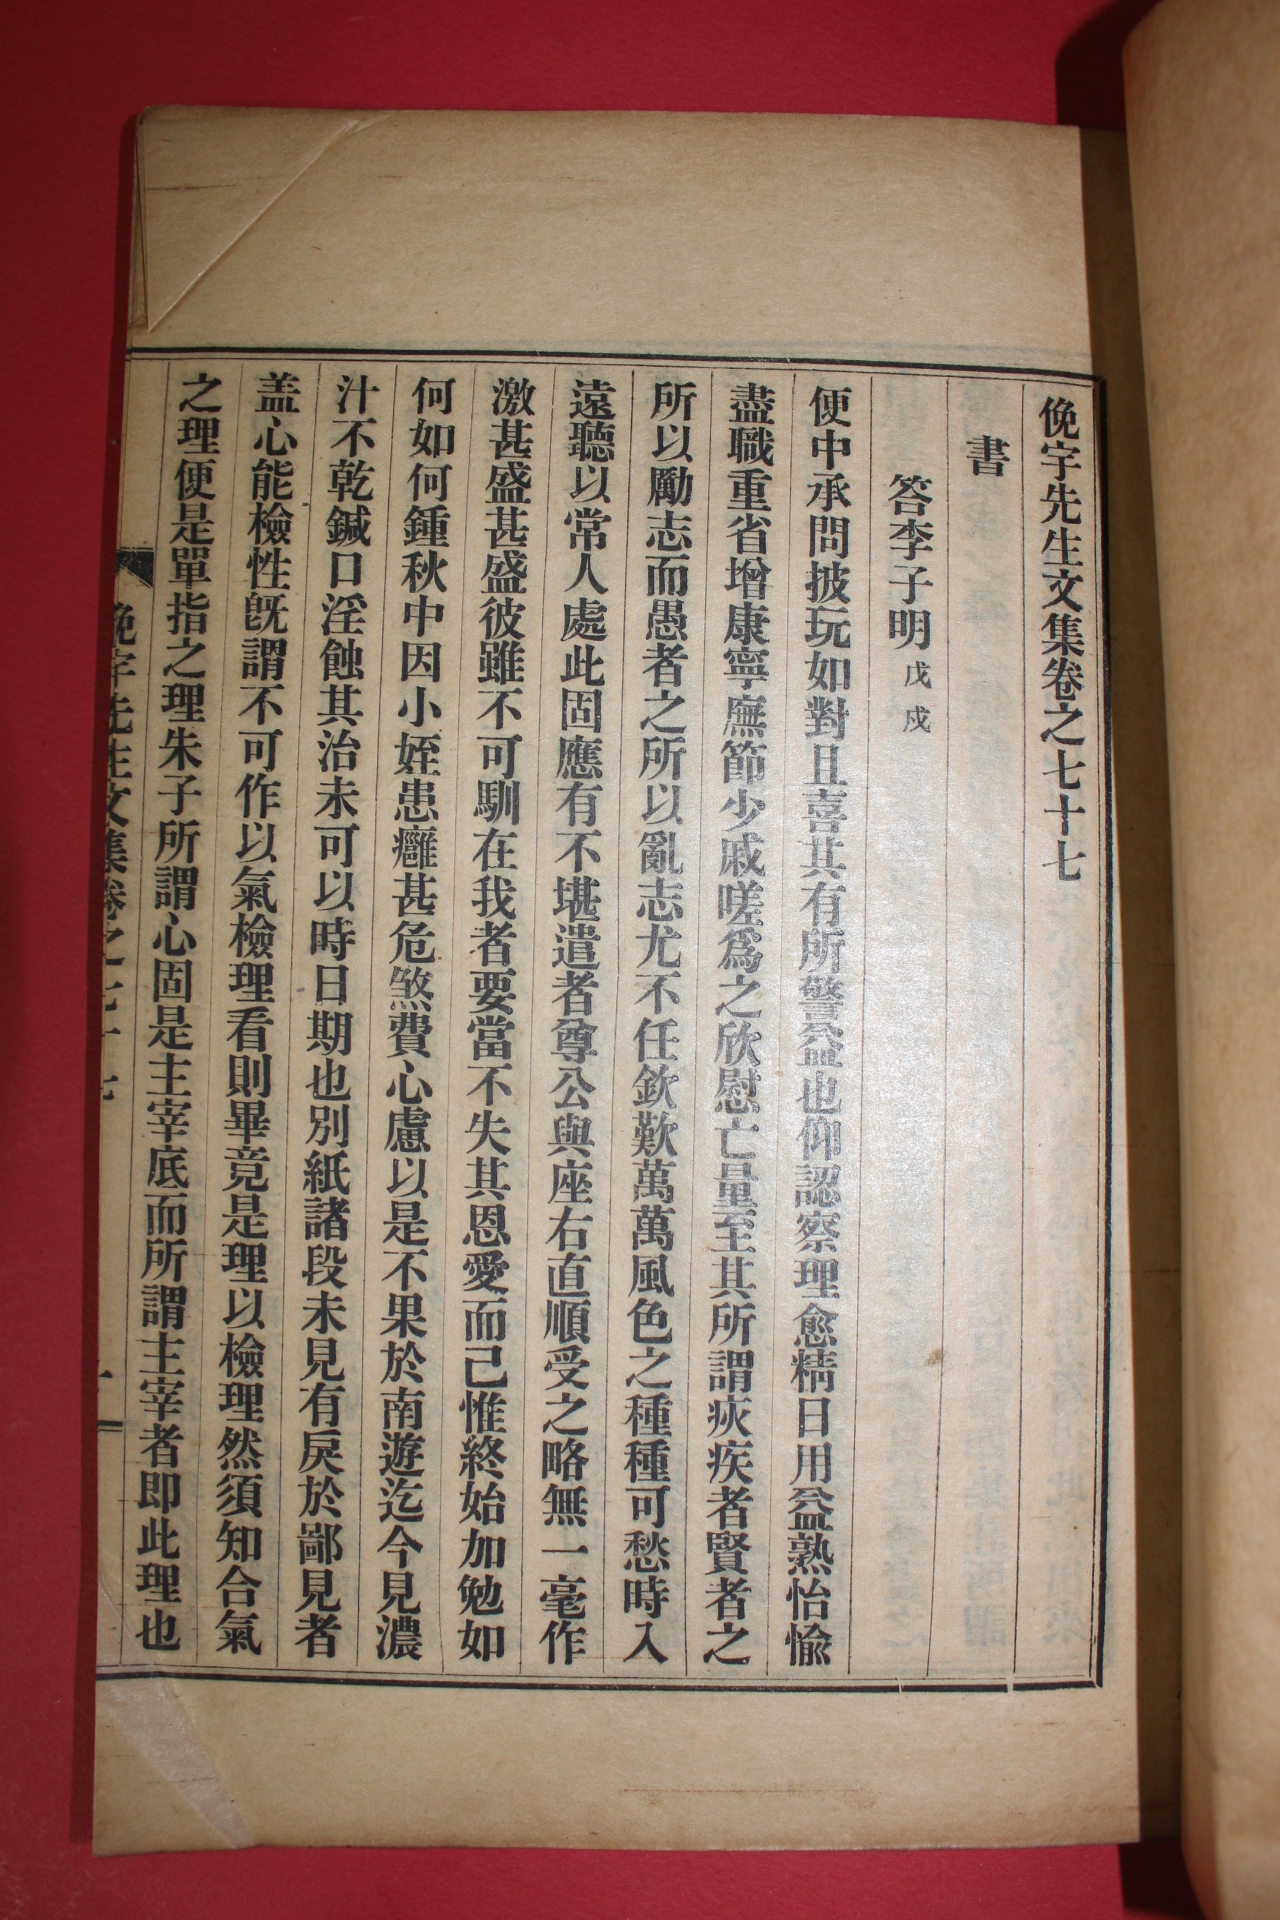 俛宇先生文集卷之七十七
書
答李子明 戊戌
便中承問披玩如對且喜其有所警益也仰認察理愈精日用益熟怡愉
盡職重省增康寧廡節少戚嗟爲之欣慰亡量至其所謂疢疾者賢者之
所以勵志而愚者之所以亂志尤不任欽歎萬萬風色之種種可愁時入
遠聽以常人處此固應有不堪遣者尊公與座右直順受之略無一毫作
激甚盛甚盛彼雖不可馴在我者要當不失其恩愛而已惟終始加勉如
何如何鍾秋中因小姪患癰甚危煞費心慮以是不果於南遊迄今見濃
汁不乾鍼口淫蝕其治未可以時日期也別紙諸段未見有戾於鄙見者
盖心能檢性旣謂不可作以氣檢理看則畢竟是理以檢理然須知合氣
之理便是單指之理朱子所謂心固是主宰底而所謂主宰者即此理也
俛宇先生文集卷之七十七
一